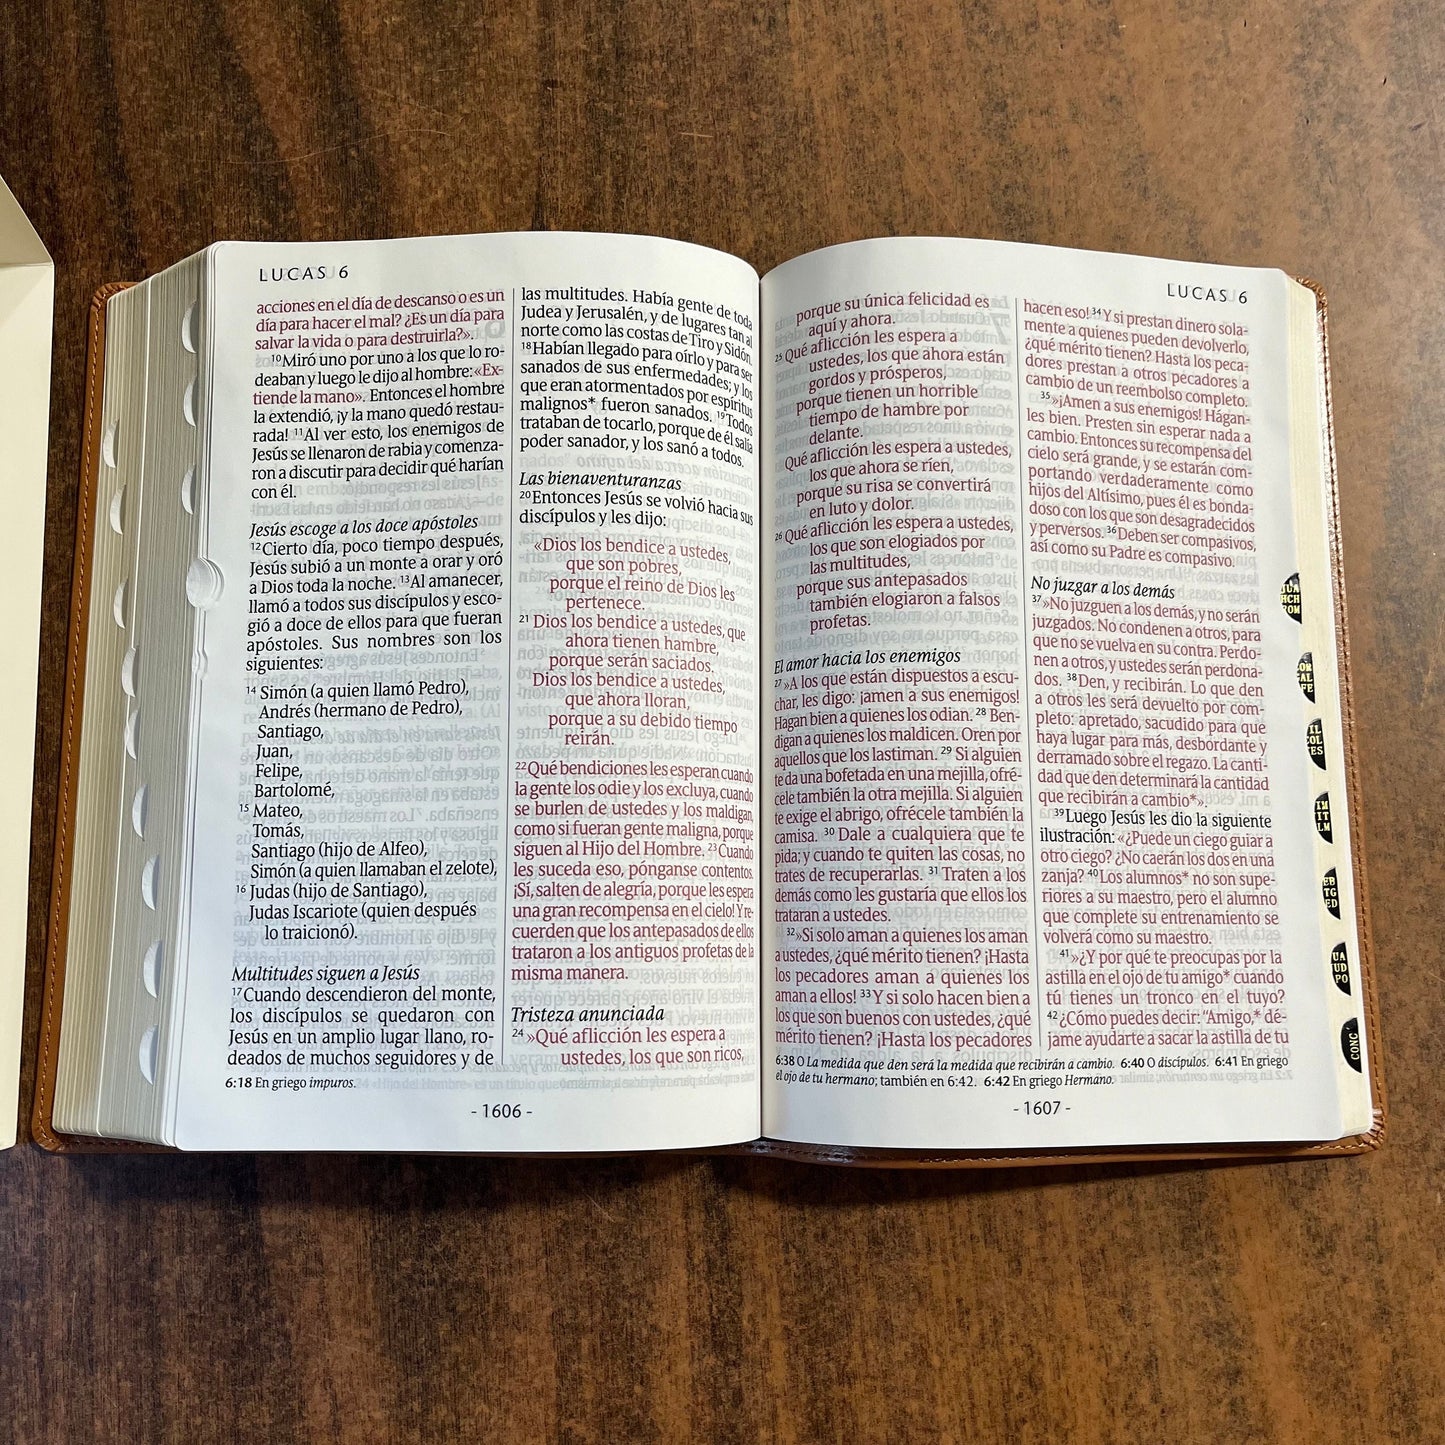 LUCAS 6
acciones en el día de descanso o es un
día para hacer el mal? ¿Es un día para
salvar la vida o para destruirla?».
10 Miró uno por uno a los que lo ro-
deaban y luego le dijo al hombre: «Ex-
tiende la mano». Entonces el hombre
la extendió, ¡y la mano quedó restau-
rada! 11 Al ver esto, los enemigos de
Jesús se llenaron de rabia y comenza-
ron a discutir para decidir qué harían
con él.
Jesús escoge a los doce apóstoles
12 Cierto día, poco tiempo después,
Jesús subió a un monte a orar y oró
a Dios toda la noche. 13 Al amanecer,
llamó a todos sus discípulos y esco-
gió a doce de ellos para que fueran
apóstoles. Sus nombres son los
siguientes:
14 Simón (a quien llamó Pedro),
Andrés (hermano de Pedro),
Santiago,
Juan,
Felipe,
Bartolomé,
15 Mateo,
Tomás,
Santiago (hijo de Alfeo),
Simón (a quien llamaban el zelote),
16 Judas (hijo de Santiago),
Judas Iscariote (quien después
lo traicionó).
Multitudes siguen a Jesús
17 Cuando descendieron del monte,
los discípulos se quedaron con
Jesús en un amplio lugar llano, ro-
deados de muchos seguidores y de
las multitudes. Había gente de toda
Judea y Jerusalén, y de lugares tan al
norte como las costas de Tiro y Sidón.
18 Habían llegado para oírlo y para ser
sanados de sus enfermedades; y los
que eran atormentados por espíritus
malignos* fueron sanados. 19 Todos
trataban de tocarlo, porque de él salía
poder sanador, y los sanó a todos.
Las bienaventuranzas
20 Entonces Jesús se volvió hacia sus
discípulos y les dijo:
«Dios los bendice a ustedes,
que son pobres,
porque el reino de Dios les
pertenece.
21 Dios los bendice a ustedes, que
ahora tienen hambre,
porque serán saciados.
Dios los bendice a ustedes,
que ahora lloran,
porque a su debido tiempo
reirán.
22 Qué bendiciones les esperan cuando
la gente los odie y los excluya, cuando
se burlen de ustedes y los maldigan,
como si fueran gente maligna, porque
siguen al Hijo del Hombre. 23 Cuando
les suceda eso, pónganse contentos.
¡Sí, salten de alegría, porque les espera
una gran recompensa en el cielo! Y re-
cuerden que los antepasados de ellos
trataron a los antiguos profetas de la
misma manera.
Tristeza anunciada
24 »Qué aflicción les espera a
ustedes, los que son ricos,
6:18 En griego impuros.
- 1606 -
LUCAS 6
porque su única felicidad es
aquí y ahora.
25 Qué aflicción les espera a
ustedes, los que ahora están
gordos y prósperos,
porque tienen un horrible
tiempo de hambre por
delante.
Qué aflicción les espera a ustedes,
los que ahora se ríen,
porque su risa se convertirá
en luto y dolor.
26 Qué aflicción les espera a ustedes,
los que son elogiados por
las multitudes,
porque sus antepasados
también elogiaron a falsos
profetas.
El amor hacia los enemigos
27 »A los que están dispuestos a escu-
char, les digo: ¡amen a sus enemigos!
Hagan bien a quienes los odian. 28 Ben-
digan a quienes los maldicen. Oren por
aquellos que los lastiman. 29 Si alguien
te da una bofetada en una mejilla, ofré-
cele también la otra mejilla. Si alguien
te exige el abrigo, ofrécele también la
camisa. 30 Dale a cualquiera que te
pida; y cuando te quiten las cosas, no
trates de recuperarlas. 31 Traten a los
demás como les gustaría que ellos los
trataran a ustedes.
32 »Si solo aman a quienes los aman
a ustedes, ¿qué mérito tienen? ¡Hasta
los pecadores aman a quienes los
aman a ellos! 33 Y si solo hacen bien a
los que son buenos con ustedes, ¿qué
mérito tienen? ¡Hasta los pecadores
hacen eso! 34 Y si prestan dinero sola-
mente a quienes pueden devolverlo,
¿qué mérito tienen? Hasta los peca-
dores prestan a otros pecadores a
cambio de un reembolso completo.
35 »¡Amen a sus enemigos! Hágan-
les bien. Presten sin esperar nada a
cambio. Entonces su recompensa del
cielo será grande, y se estarán com-
portando verdaderamente como
hijos del Altísimo, pues él es bonda-
doso con los que son desagradecidos
y perversos. 36 Deben ser compasivos,
así como su Padre es compasivo.
No juzgar a los demás
37 »No juzguen a los demás, y no serán
juzgados. No condenen a otros, para
que no se vuelva en su contra. Perdo-
nen a otros, y ustedes serán perdona-
dos. 38 Den, y recibirán. Lo que den
a otros les será devuelto por com-
pleto: apretado, sacudido para que
haya lugar para más, desbordante y
derramado sobre el regazo. La canti-
dad que den determinará la cantidad
que recibirán a cambio*».
39 Luego Jesús les dio la siguiente
ilustración: «¿Puede un ciego guiar a
otro ciego? ¿No caerán los dos en una
zanja? 40 Los alumnos* no son supe-
riores a su maestro, pero el alumno
que complete su entrenamiento se
volverá como su maestro.
41 »¿Y por qué te preocupas por la
astilla en el ojo de tu amigo* cuando
tú tienes un tronco en el tuyo?
42 ¿Cómo puedes decir: "Amigo,* dé-
jame ayudarte a sacar la astilla de tu
6:38 O La medida que den será la medida que recibirán a cambio. 6:40 O discípulos. 6:41 En griego
el ojo de tu hermano; también en 6:42. 6:42 En griego Hermano.
- 1607 -
CONC